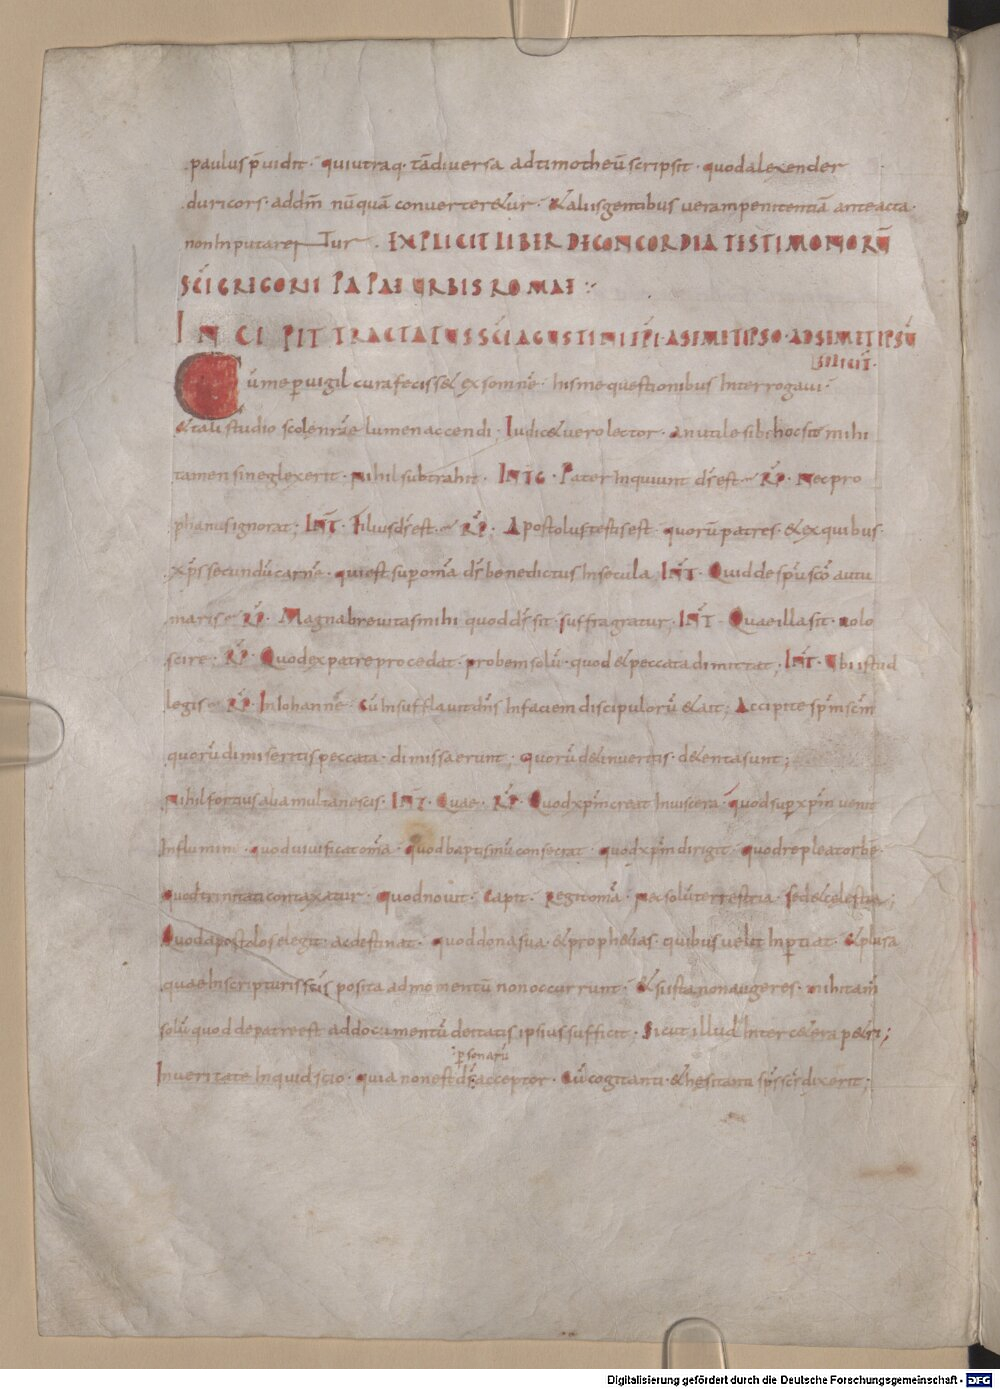 paulus p̄uidit · quiutraq· tā diuersa adtimotheū scripsit · quodalexender
duricors · addm̄ nū quā conuerter&ur · &aliis gentibus ueram penitentiā anteacta ·
non Inputaretur · EXPLICIT LIBER DE CONCORDIA TESTIMONIORŪ
SC̄I GREGORII PAPAE URBIS ROMAE :·
INCIPIT TRACTATUS SC̄I AGUSTINI EP̄I · A SIMETIPSO · AD SIMETIPSŪ
Cūme p̱uigil cura feciss& exsomnē · hisme questionibus Interrogaui ·
&tali studio lumen accendi ; Iudic& uero lector · anutile sibi hocsit mihi
tamen sineglexerit · nihil subtrahit · INTG · Pater Inquiunt dr̄ est · R̄P · Nec pro
phanus ignorat ; INT̄ · Filius dr̄ est · R̄P · Apostolus testis est · quorū patres · &exquibus ·
xp̄s secundū carnē · quiest sup omā dr̄ benedictus Insecula INT̄ · Quid de spū scō autu
maris · R̄P · Magna breuitas mihi quod dr̄ sit suffragratur · INT̄ · Quae illa sit · uolo
scire · R̄P · Quod expatre procedat · probem solū · quod &peccata dimittat ; INT̄ · Ubi istud
legis · R̄P · In Iohannē · Cū Insufflauit dn̄s Infaciem discipulorū &ait ; Accipite spm̄ scm̄
quorū dimiseritis peccata · dimissa erunt · quorū d&inueritis · d&enta sunt ;
Nihil fortius alia multa nescis · INT̄ · Quae · R̄P · Quod xpm̄ creat Inuiscera · quod sup xpm̄ uenit
Influmine · quod uiuificat omā · quod baptismū consecrat · quod xpm̄ dirigit · quod repleat orbē ·
quod trinitati contaxatur · quod nouit · Capit · Regit omā · nec solū terrestria · sed &celestia ;
Quod apostolos elegit · acdestinat · quod dona sua · &proph&ias · quibus uelit Inp̱tiat · &plusa
quae Inscripturis sc̄is posita ad momentū non occurrunt · &si ista non augeres · mihi tam̄
solū quod de patre est ad documentū deitatis ipsius sufficit ; Sicut illud Inter c&era p&ri ;
p̱sonarū
In ueritate Inquid scio · quia non est dr̄ acceptor · Cū cogitanti · &hesitanti sp̄s sc̄s dixerit ;